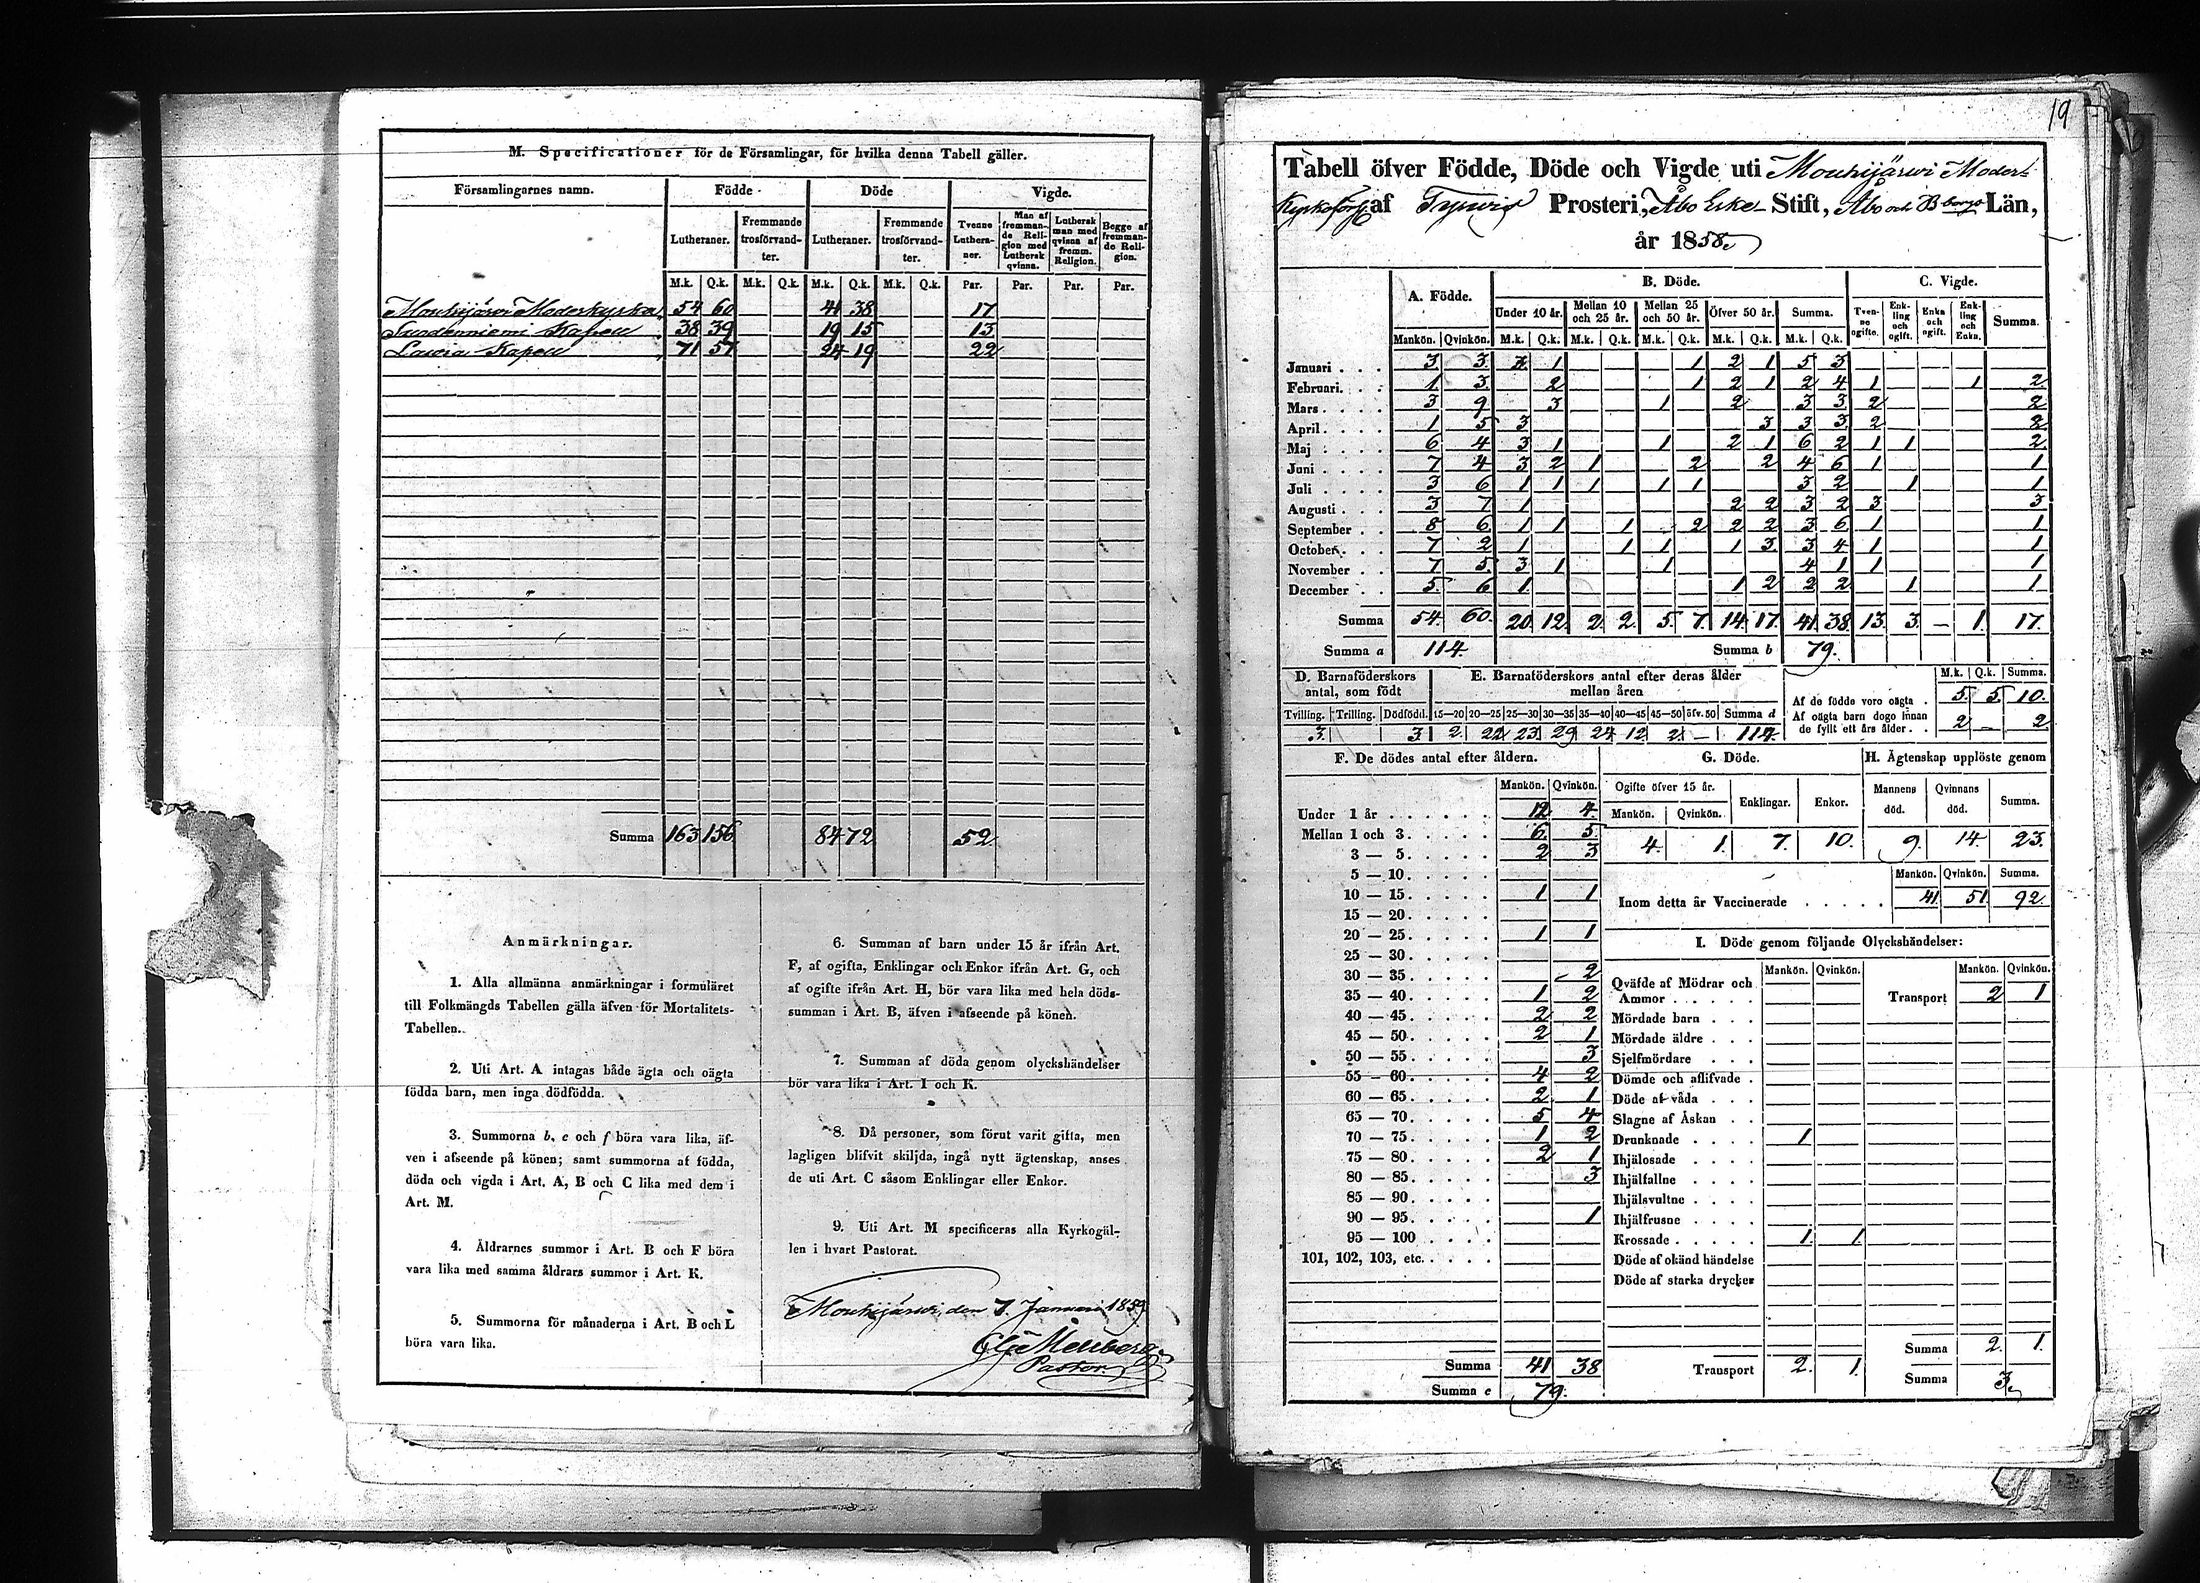 M. Specificationer för de Församlingar, för hvilka denna Tabell gäller.
Församlingarnes namn. Födde Döde Vigde.
Lutheraner. Fremmande trosförvandter. Lutheraner. Fremmande trosförvandter. Tvenne Lutheraner. Man af fremmande Religion med Luthersk qvinna. Luthersk man med qvinna af fremm. Religion. Begge af fremmande Religion.
M.k. Q.k. M.k. Q.k. M.k. Q.k. M.k. Q.k. Par. Par. Par. Par.
Mouhijärwi Moderkyrka 54 60 41 38 17
Suodenniemi Kapell 38 39 19 15 13
Lawia Kapell 71 57 24 19 22
Summa 163 156 84 72 52
Anmärkningar.
1. Alla allmänna anmärkningar i formuläret
till Folkmängds Tabellen gälla äfven för Mortalitets-
Tabellen.
2. Uti Art. A intagas både ägta och oägta
födda barn, men inga dödfödda.
3. Summorna b, e och f böra vara lika, äf-
ven i afseende på könen; samt summorna af födda,
döda och vigda i Art. A, B och C lika med dem i
Art. M.
4. Åldrarnes summor i Art. B och F böra
vara lika med samma åldrars summor i Art. K.
5. Summorna för månaderna i Art. B och L
böra vara lika.
6. Summan af barn under 15 år ifrån Art.
F, af ogifta, Enklingar och Enkor ifrån Art. G, och
af ogifte ifrån Art. H, bör vara lika med hela döds-
summan i Art. B, äfven i afseende på könen.
7. Summan af döda genom olyckshändelser
bör vara lika i Art. I och K.
8. Då personer, som förut varit gifta, men
lagligen blifvit skiljda, ingå nytt ägtenskap, anses
de uti Art. C såsom Enklingar eller Enkor.
9. Uti Art. M specificeras alla Kyrkogäl-
len i hvart Pastorat.
Mouhijärwi, den 7. Januari 1859
Pastor.
19
Tabell öfver Födde, Döde och Vigde uti Mouhijärwi Moder-
Kyrkoförs. af Tyrwis Prosteri, Åbo Erke- Stift, Åbo och B:borgs Län,
år 1858.
A. Födde. B. Döde. C. Vigde.
Under 10 år. Mellan 10 och 25 år. Mellan 25 och 50 år. Öfver 50 år. Summa. Tvenne ogifte. Enkling och ogift. Enka och ogift. Enkling och Enka. Summa.
Mankön. Qvinkön. M.k. Q.k. M.k. Q.k. M.k. Q.k. M.k. Q.k. M.k. Q.k.
Januari 3 3 2 1 1 2 1 5 3
Februari 1 3 2 1 2 1 2 4 1 1 2
Mars 3 9 3 1 2 3 3 2 2
April 1 5 3 3 3 3 2 2
Maj 6 4 3 1 1 2 1 6 2 1 1 2
Juni 7 4 3 2 1 2 2 4 6 1 1
Juli 3 6 1 1 1 1 1 3 2 1 1
Augusti 3 7 1 2 2 3 2 3 3
September 8 6 1 1 1 2 2 2 3 6 1 1
October 7 2 1 1 1 1 3 3 4 1 1
November 7 5 3 1 1 4 1 1 1
December 5 6 1 1 2 2 2 1 1
Summa 54 60 20 12 2 2 5 7 14 17 41 38 13 3 – 1 17
Summa a 114 Summa b 79.
D. Barnaföderskors antal, som födt
Tvilling. Trilling. Dödfödd.
3 3
E. Barnaföderskors antal efter deras ålder mellan åren
15—20 20—25 25—30 30—35 35—40 40—45 45—50 öfv. 50 Summa d
2 22 23 29 24 12 2 – 114
M.k. Q.k. Summa.
Af de födde voro oägta 5 5 10
Af oägta barn dogo innan de fyllt ett års ålder 2 – 2
F. De dödes antal efter åldern.
Mankön. Qvinkön.
Under 1 år 12 4
Mellan 1 och 3 6 5
3 — 5 2 3
5 — 10
10 — 15 1 1
15 — 20
20 — 25 1 1
25 — 30
30 — 35 – 2
35 — 40 1 2
40 — 45 2 2
45 — 50 2 1
50 — 55 3
55 — 60 4 2
60 — 65 2 1
65 — 70 5 4
70 — 75 1 2
75 — 80 2 1
80 — 85 3
85 — 90
90 — 95 1
95 — 100
101, 102, 103, etc.
Summa 41 38
Summa e 79.
G. Döde.
Ogifte öfver 15 år. Enklingar. Enkor.
Mankön. Qvinkön.
4 1 7 10
H. Ägtenskap upplöste genom
Mannens död. Qvinnans död. Summa.
9 14 23
Mankön. Qvinkön. Summa.
Inom detta år Vaccinerade 41 51 92
I. Döde genom följande Olyckshändelser:
Mankön. Qvinkön. Mankön. Qvinkön.
Qväfde af Mödrar och Ammor Transport 2 1
Mördade barn
Mördade äldre
Sjelfmördare
Dömde och aflifvade
Döde af våda
Slagne af Åskan
Drunknade 1
Ihjälosade
Ihjälfallne
Ihjälsvultne
Ihjälfrusne
Krossade 1 1
Döde af okänd händelse
Döde af starka drycker
Summa 2 1
Transport 2 1 Summa 3